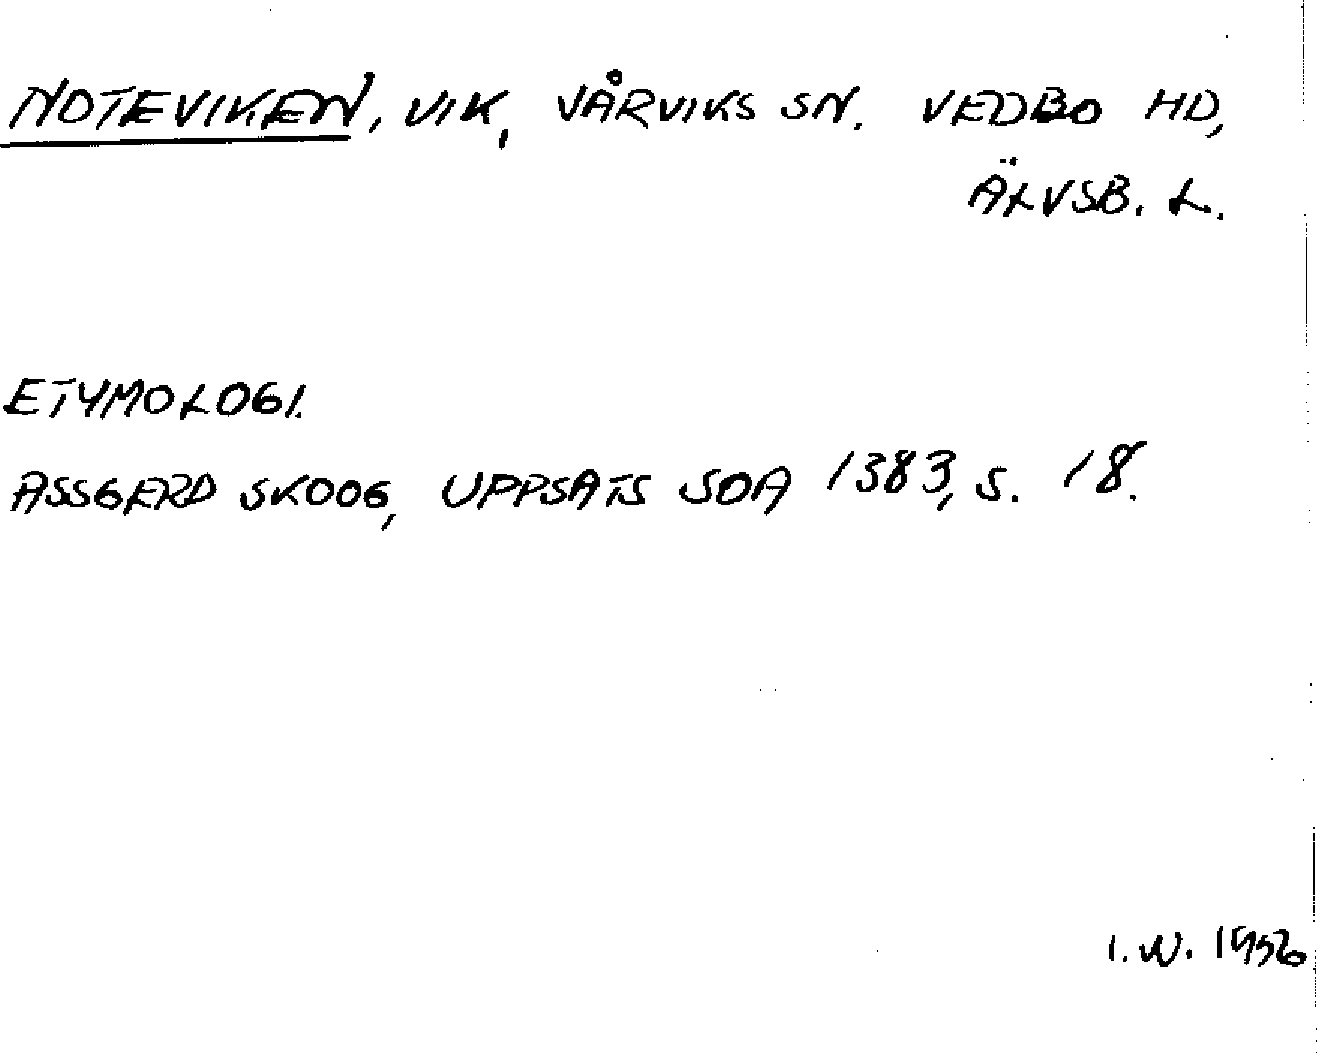 NOTEVIKEN, VIK, VÅRVIKS SN. VEDBO HD,
ÄLVSB. L.
ETYMOLOGI.
ASSGERD SKOOG, UPPSATS SOA 1383, S. 18.
I. W. 1956